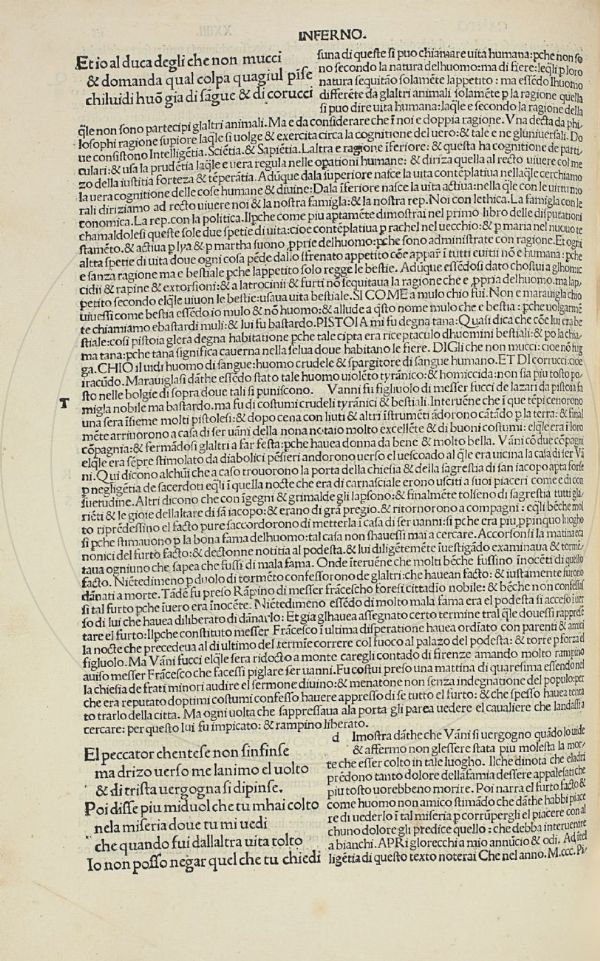 INFERNO.
Et io al duca degli che non mucci
& domanda qual colpa quagiul pise
chiluidi huō gia di sāgue & di corucci
suna di queste si puo chiamare uita humana: pche non so
no secondo la natura delhuomo: ma di fiere: leqli p loro
natura sequitāo solamēte lappetito: ma essēdo lhuomo
differēte da glaltri animali solamēte p la ragione quella
si puo dire uita humana: laqle e secondo la ragione della
qle non sono partecipi glaltri animali. Ma e da considerare che ī noi e doppia ragione. Vna decta da phi
losophi ragione supiore laqle si uolge & exercita circa la cognitione del uero: & tale e ne gluniuersali. Do
ue consistono Intelligētia. Sciētia. & Sapiētia. Laltra e ragione īferiore: & questa ha cognitione de parti
culari: & usa la prudētia laqle e uera regula nelle opationi humane: & diriza quella al recto uiuere col me
zo della iustitia forteza & tēperātia. Adūque dala superiore nasce la uita contēplatiua nellaqle cerchiamo
la uera cognitione delle cose humane & diuine: Dala īferiore nasce la uita actiua: nella qle con le uirtu mo
rali diriziamo ad recto uiuere noi & la nostra famigla: & la nostra rep. Noi con lethica. La famigla con le
conomica. La rep. con la politica. Ilpche come piu aptamēte dimostrai nel primo libro delle disputationi
chamaldolesi queste sole due spetie di uita: cioe contēplatiua p rachel nel uecchio: & p maria nel nuouo te
stamēto. & actiua p lya & p martha suono pprie delhuomo: pche sono administrate con ragione. Et ogni
altra spetie di uita doue ogni cosa pēde dallo sfrenato appetito cōe appar ī tutti euitii nō e humana: pche
e sanza ragione ma e bestiale pche lappetito solo regge le bestie. Adūque essēdosi dato chostui a glhomi
cidii & rapine & extorsioni: & a latrocinii & furti nō sequitaua la ragione che e ppria delhuomo. ma lap
petito secondo elqle uiuon le bestie: usaua uita bestiale. SI COME a mulo chio fui. Non e marauigla chio
uiuessi come bestia essēdo io mulo & nō huomo: & allude a qsto nome mulo che e bestia: pche uolgarmē
te chiamiamo ebastardi muli: & lui fu bastardo. PISTOIA mi fu degna tana: Quasi dica che cōe lui era be
stiale: cosi pistoia glera degna habitatione pche tale cipta era riceptaculo dhuomini bestiali: & po la chia
ma tana: pche tana significa cauerna nella selua doue habitano le fiere. DIGli che non mucci: cioe nō fug
ga. CHIO iluidi huomo di sangue: huomo crudele & spargitore di sangue humano. ET DI corrucci: cioe
iracūdo. Marauiglasi dāthe essēdo stato tale huomo uiolēto tyrānico: & homicida: non sia piu tosto po
sto nelle bolgie di sopra doue tali si puniscono. Vanni fu figluolo di messer fucci de lazari da pistoia fa
T
migla nobile ma bastardo. ma fu di costumi crudeli tyrānici & bestiali. Interuēne che ī que tēpi cenorono
una sera īsieme molti pistolesi: & dopo cena con liuti & altri īstrumēti ādorono cātādo p la terra: & final
mēte arriuorono a casa di ser uāni della nona notaio molto excellēte & di buoni costumi: elqle era ī loro
cōpagnia: & fermādosi glaltri a far festa: pche haueua donna da bene & molto bella. Vāni cō due cōpagni
elqle era sēpre stimolato da diabolici pēsieri andorono uerso el uescoado al qle era uicina la casa di ser Vā
ni. Qui dicono alchuī che a caso trouorono la porta della chiesia & della sagrestia di san iacopo apta forse
p negligētia de sacerdoti eqli ī quella nocte che era di carnasciale erono usciti a suoi piaceri come e di con
suetudine. Altri dicono che con īgegni & grimalde gli lapsono: & finalmēte tolseno di sagrestia tutti gliar
iēti & le gioie dellaltare di sā iacopo: & erano di grā pregio. & ritornorono a compagni: eqli bēche mol
to riprēdessino el facto pure saccordorono di metterla ī casa di ser uanni: si pche era piu ppinquo luogho
si pche stimauono p la bona fama delhuomo: tal casa non shauessi mai a cercare. Accorsonsi la matina eca
nonici del furto facto: & dectonne notitia al podesta. & lui diligētemēte īuestigādo examinaua & tormē
taua ogniuno che sapea che fussi di mala fama. Onde īteruēne che molti bēche fussino īnocēti di quello
facto. Niētedimeno p duolo di tormēto confessorono de glaltri: che hauean facto: & iustamente furono
dānati a morte. Tādē fu preso Rāpino di messer frācescho foresi cittadio nobile: & bēche non confessas
si tal furto pche iuero era īnocēte. Niētedimeno essēdo di molto mala fama era el podesta si acceso ī uer
so di lui che hauea diliberato di dānarlo: Et gia glhauea assegnato certo termine tral qle douessi rappresē
tare el furto: Ilpche constituto messer Frācesco ī ultima disperatione hauea ordiato con parenti & amici
la nocte che precedeua al di ultimo del termie correre col fuoco al palazo del podesta: & torre p forza el
figluolo. Ma Vāni fucci elqle sera ridocto a monte caregli contado di firenze amando molto rampino
auiso messer Frācesco che facessi piglare ser uanni. Fu costui preso una mattina di quaresima essendo nel
la chiesia de frati minori audire el sermone diuino: & menatone non senza indegnatione del populo: per
che era reputato doptimi costumi confesso hauere appresso di se tutto el furto: & che spesso hauea tenta
to trarlo della citta. Ma ogni uolta che sappressaua ala porta gli parea uedere el caualiere che landassi a
cercare: per questo lui fu impicato: & rampino liberato.
El peccator chentese non sinfinse
ma drizo uerso me lanimo el uolto
& di trista uergogna si dipinse.
Poi disse piu mi duol che tu mhai colto
nela miseria doue tu mi uedi
che quando fui dallaltra uita tolto
Io non posso negar quel che tu chiedi
d Imostra dāthe che Vāni si uergogno quādo lo uide
& affermo non glessere stata piu molesta la mor
te che esser colto in tale luogho. Ilche dinota che eladri
prēdono tanto dolore della fama dessere appalesati che
piu tosto uorebbeno morire. Poi narra el furto facto &
come huomo non amico stimādo che dāthe habbi piace
re di uederlo ī tal miseria p corrūpergli el piacere con al
chuno dolore gli predice quello: che debba interuenire
a bianchi. APRi glorecchi a mio annūcio & odi. Ad ītel
ligētia di questo texto noterai Che nel anno. M.ccc. Pi